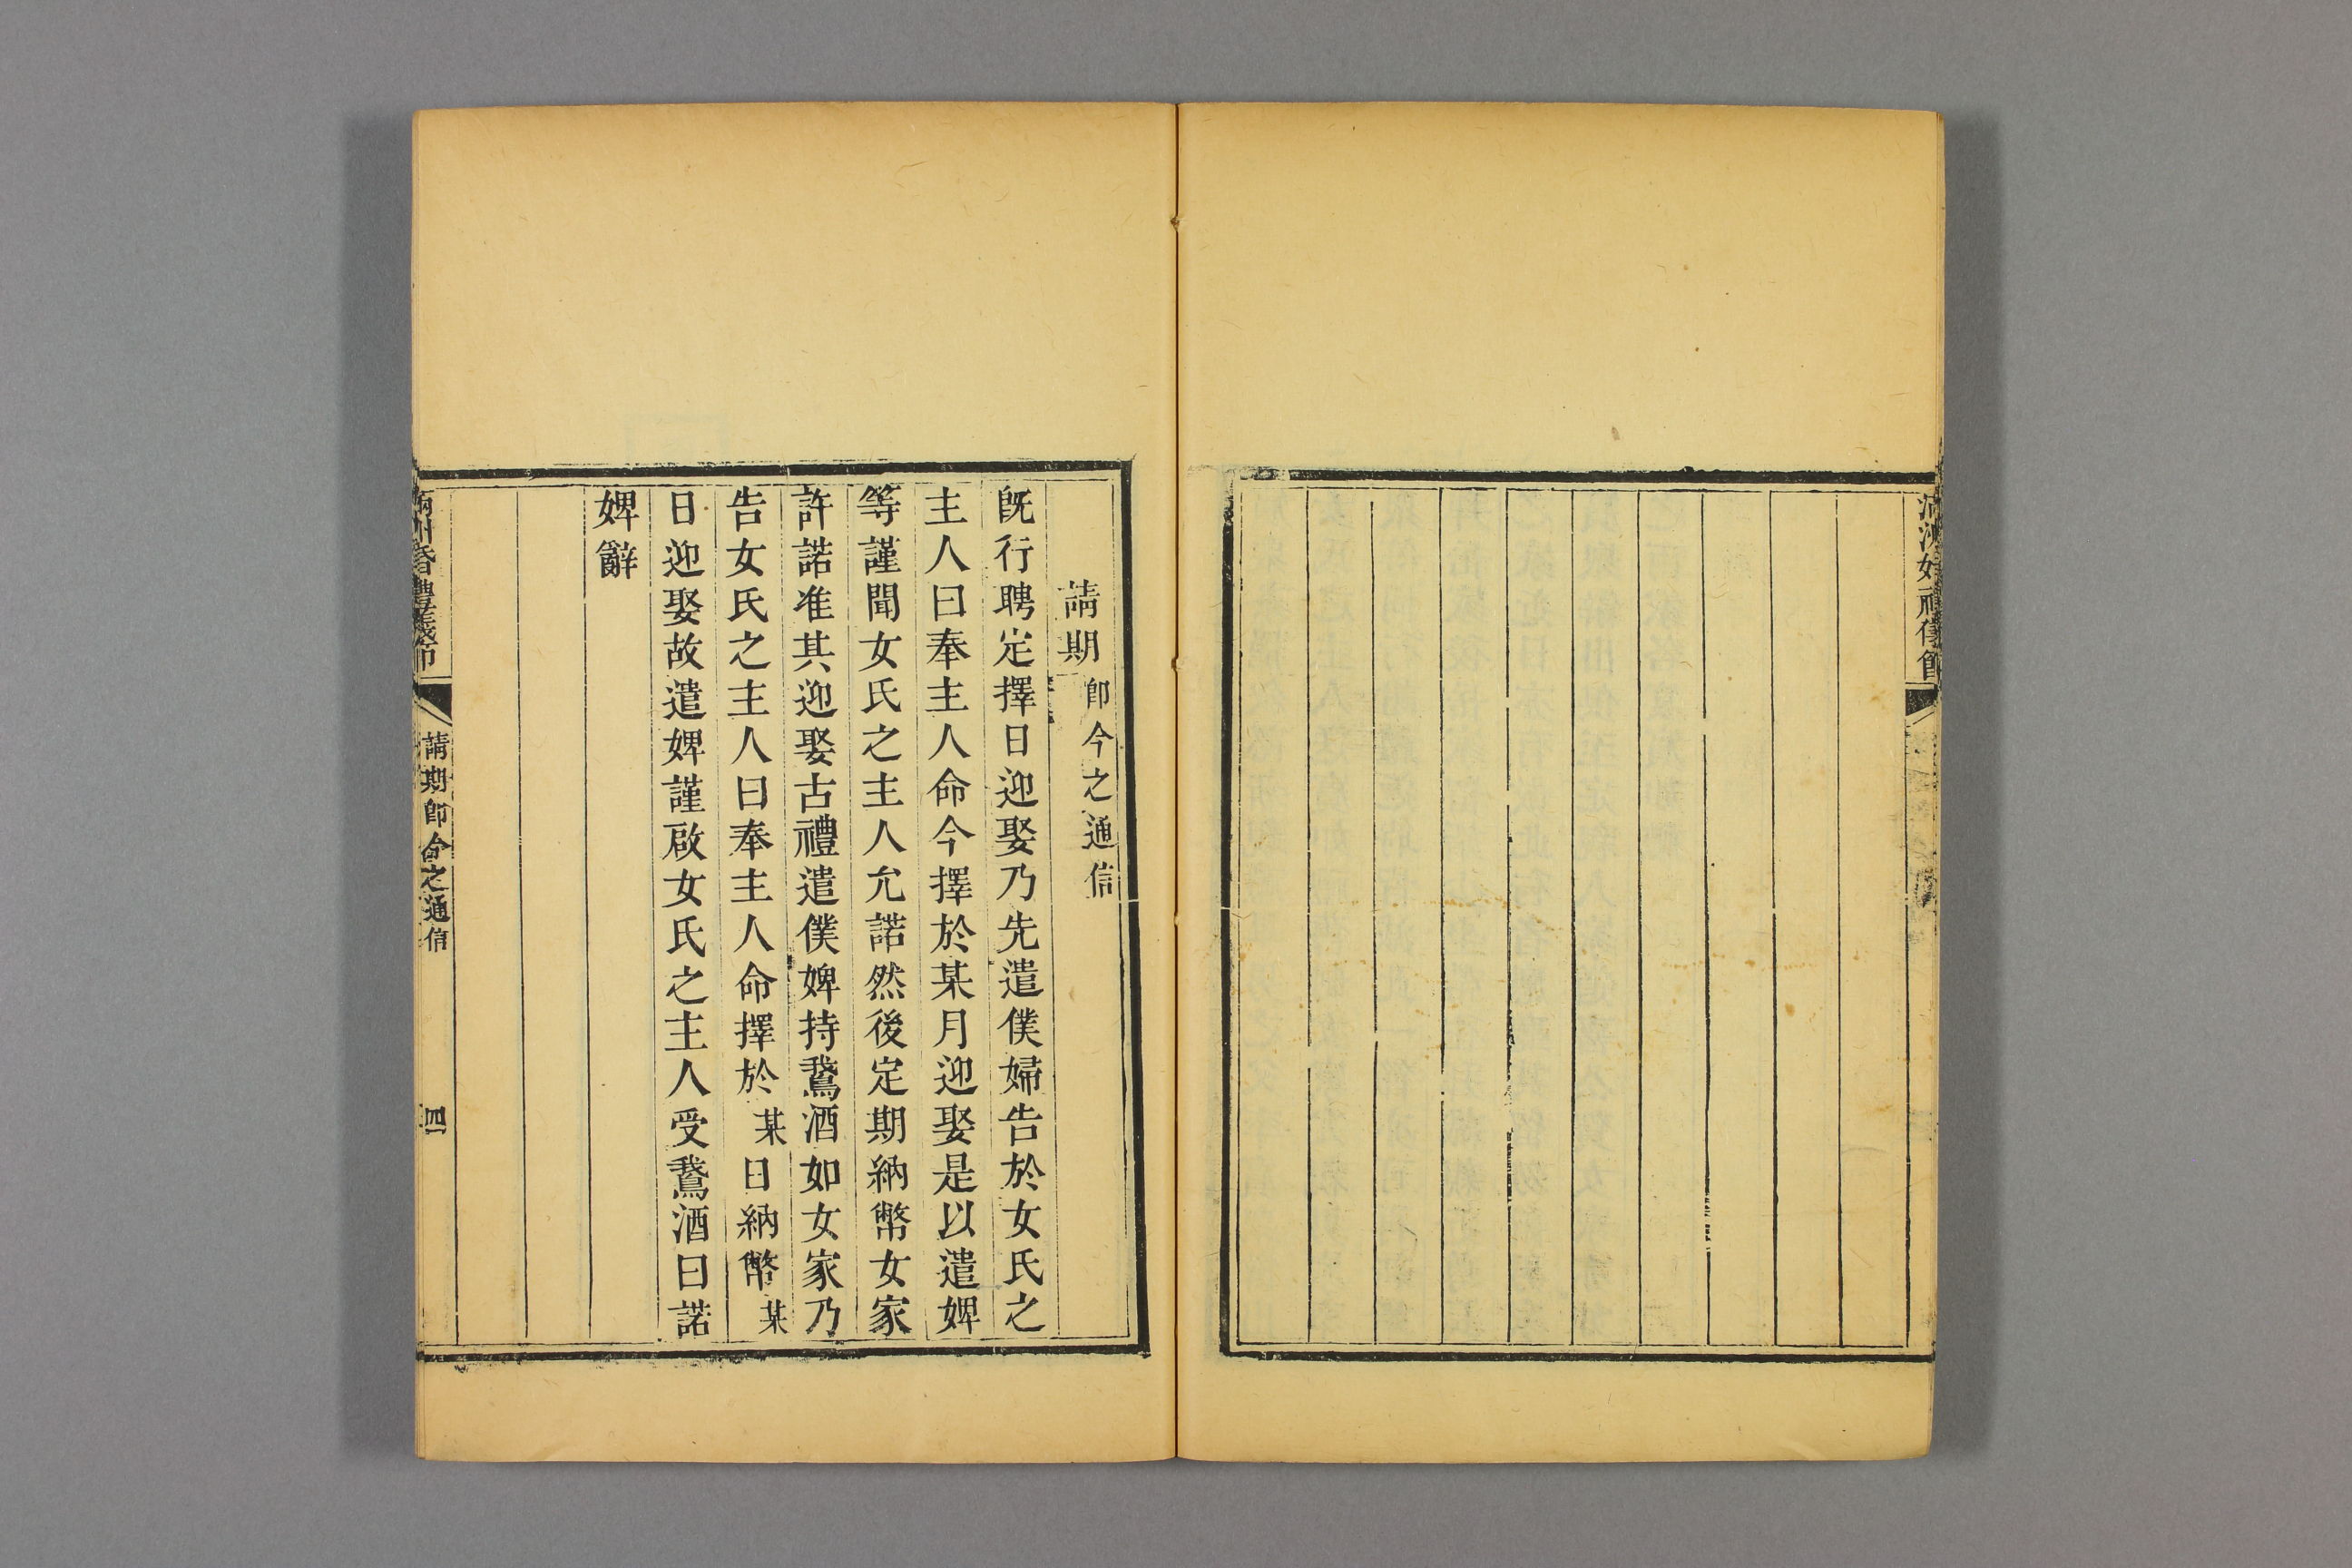 請期卽今之通信
旣行聘定擇日迎娶乃先遣僕婦告於女氏之
主人曰奉主人命今擇於某月迎娶是以遣婢
等謹聞女氏之主人允諾然後定期納幣女家
許諾准其迎娶古禮遣僕婢持鵞酒如女家乃
告女氏之主人曰奉主人命擇於某日納幣某
日迎娶故遣婢謹啟女氏之主人受鵞酒曰諾
婢辭
請期卽今之通信
四